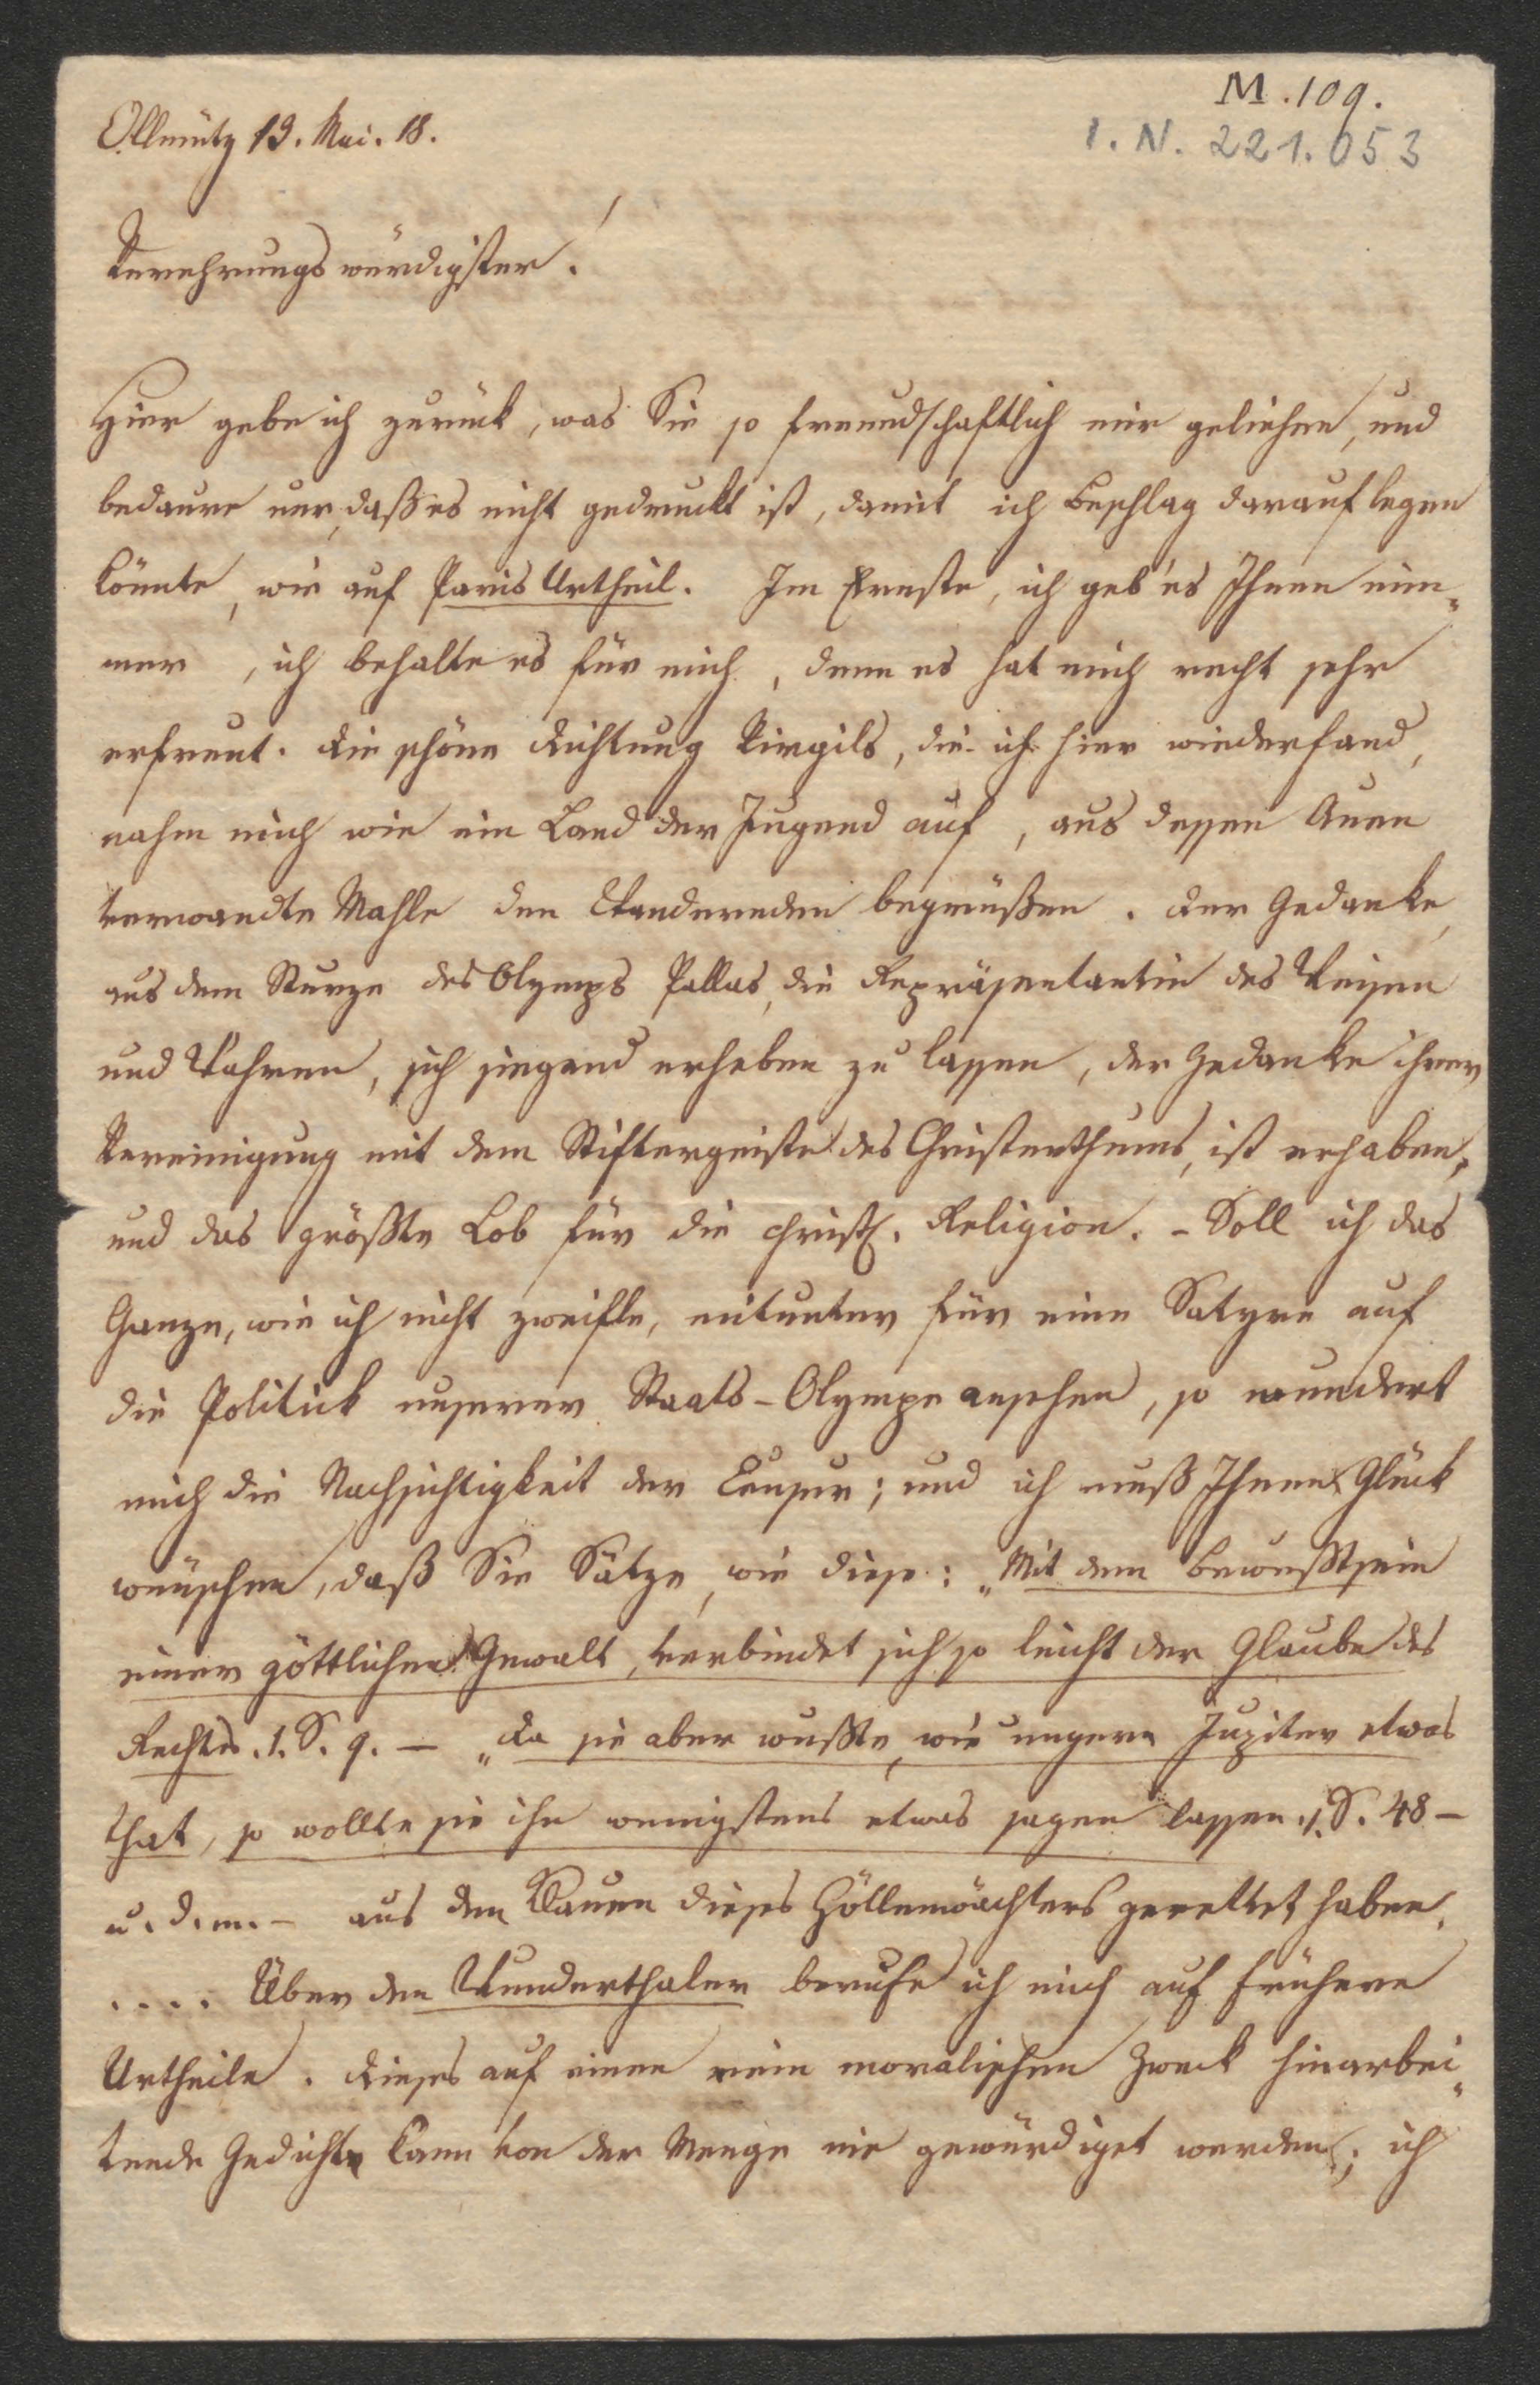 M. 109.
I. N. 221.053
Ollmütz 13. Mai. 18.
Verehrungswürdigster!
Hier gebe ich zurück, was Sie so freundschaftlich mir geliehen, und
bedaure nur, daß es nicht gedruckt ist, damit ich Beschlag darauf legen
könnte, wie auf Paris Urtheil. Im Ernste, ich geb' es Ihnen nim„
mer, ich behalte es für mich, denn es hat mich recht sehr
erfreut. Die schöne Dichtung Virgils, die ich hier wiederfand,
nahm mich wie ein Land der Jugend auf, aus dessen Auen
verwandte Mahle den Wandernden begrüßen. Der Gedanke,
aus dem Sturze des Olymps Pallas, die Repräsentantin des Weisen
und Wahren, sich siegend erheben zu lassen, der Gedanke ihrer
Vereinigung mit dem Stiftergeiste des Christenthums, ist erhaben,
und das größte Lob für die christl. Religion. – Soll ich das
Ganze, wie ich nicht zweifle, mitunter für eine Satyre auf
die Politick unserer Staats-Olympe ansehen, so wundert
mich die Nachsichtigkeit der Censur; und ich muß Ihnen Glück
wünschen, daß Sie Sätze, wie diese: „Mit dem Bewußtsein
einer göttlichen Gewalt, verbindet sich so leicht der Glaube des
Rechtes. 1. S. 9. – „Da sie aber wußte, wie ungern Jupiter etwas
that, so wollte sie ihn wenigstens etwas sagen lassen. 1. S. 48 –
u. d. m. – aus den Klauen dieses Höllenwächters gerettet haben.
.... Über den Wunderthaler berufe ich mich auf frühere
Urtheile. Dieses auf einen rein moralischen Zweck hinarbei„
tende Gedicht kann von der Menge nie gewürdiget werden; ich